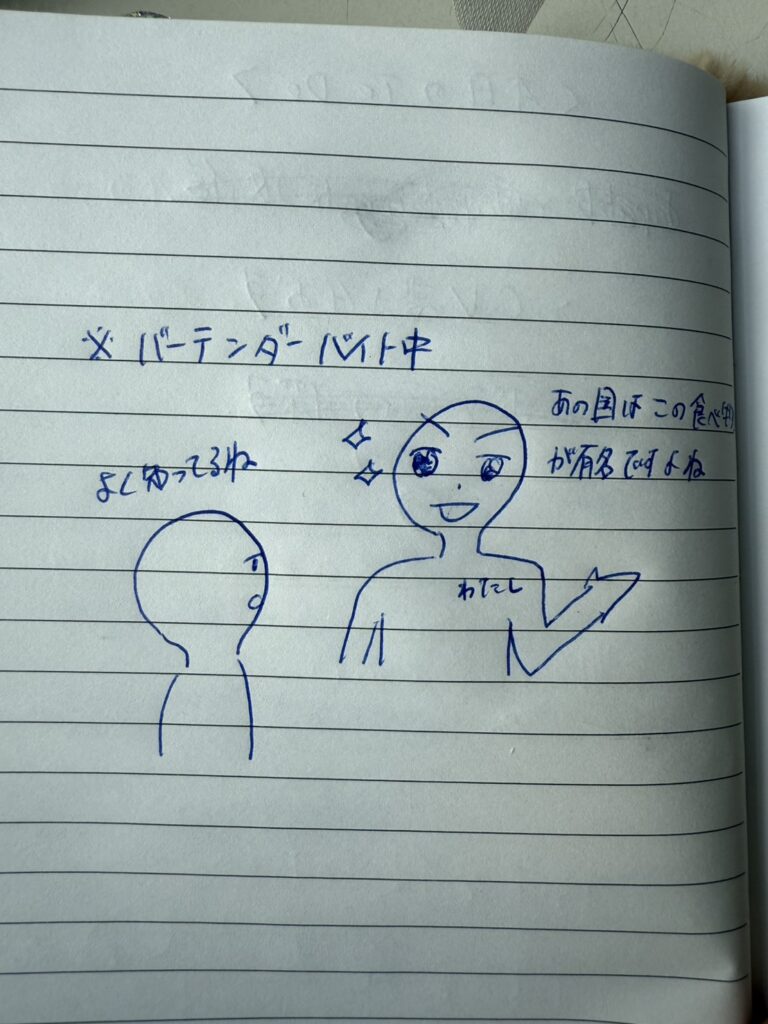 ※バーテンダーバイト中
あの国はこの食べ物
が有名ですよね
よく知ってるね
わたし